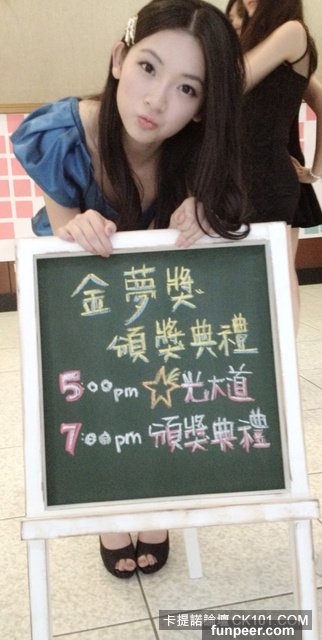 金夢獎
頒獎典禮
5:00pm ☆光大道
7:00pm 頒獎典禮
卡提諾論壇 CK101.COM
funpeer.com